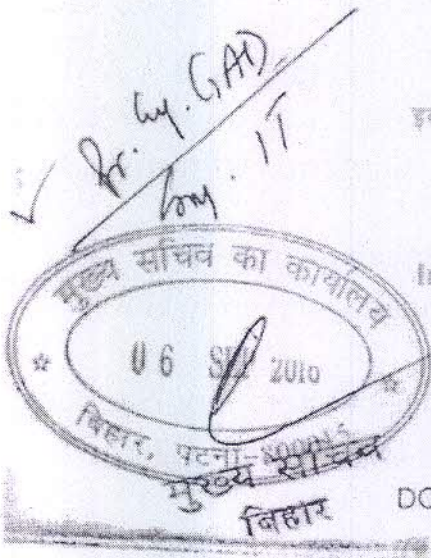 Pr. Sy. GAD
Sy. IT
मुख्य सचिव का कार्यालय
06 SEP 2016
बिहार, पटना-800015
मुख्य सचिव
बिहार
DO